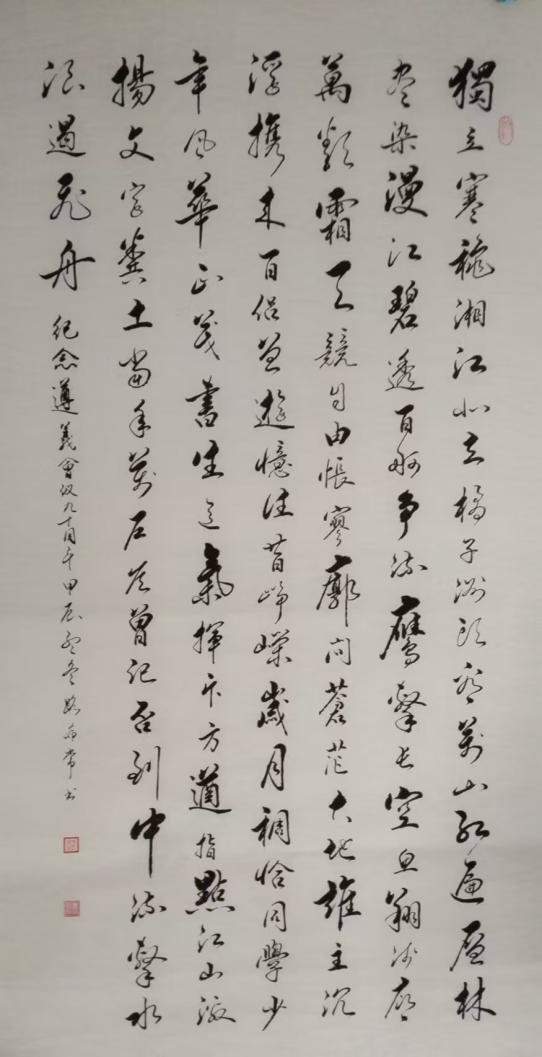 獨立寒穐湘江北去橘子洲头看萬山红遍层林
尽染漫江碧透百舸争流鷹擊长空鱼翔浅底
萬類霜天競自由悵寥廓问蒼茫大地誰主沉
浮携来百侣曾遊憶往昔峥嵘歲月稠恰同學少
年风華正茂書生意氣揮斥方遒指點江山激
揚文字糞土当年萬户侯曾记否到中流擊水
浪遏飞舟 纪念遵義會议九十周年甲辰 书